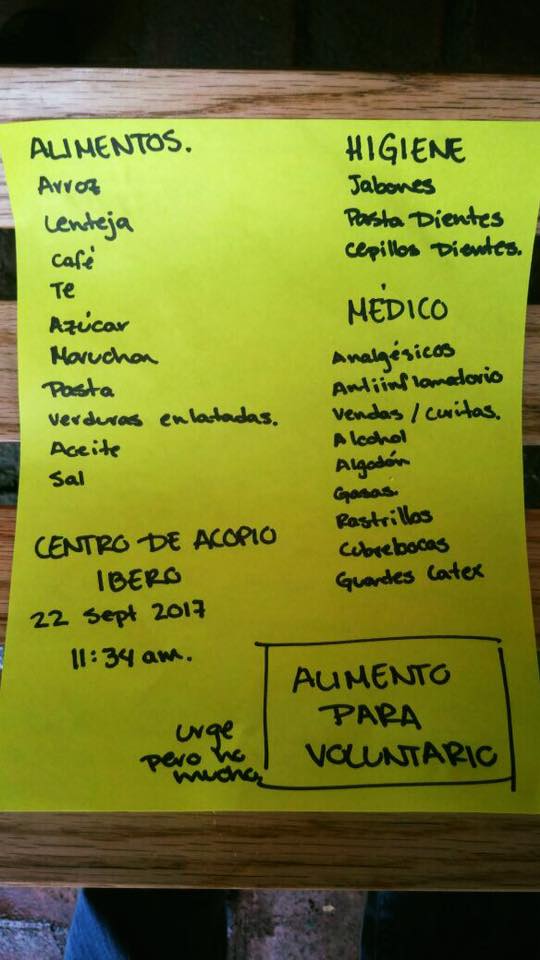 ALIMENTOS.
Arroz
Lenteja
Café
Te
Azúcar
Maruchan
Pasta
Verduras enlatadas.
Aceite
Sal
CENTRO DE ACOPIO
IBERO
22 Sept 2017
11:34 am.
HIGIENE
Jabones
Pasta Dientes
Cepillos Dientes.
MÉDICO
Analgésicos
Antiinflamatorio
Vendas / Curitas.
Alcohol
Algodón
Gasas.
Rastrillos
Cubrebocas
Guantes Latex
urge
pero no
mucho
ALIMENTO
PARA
VOLUNTARIO